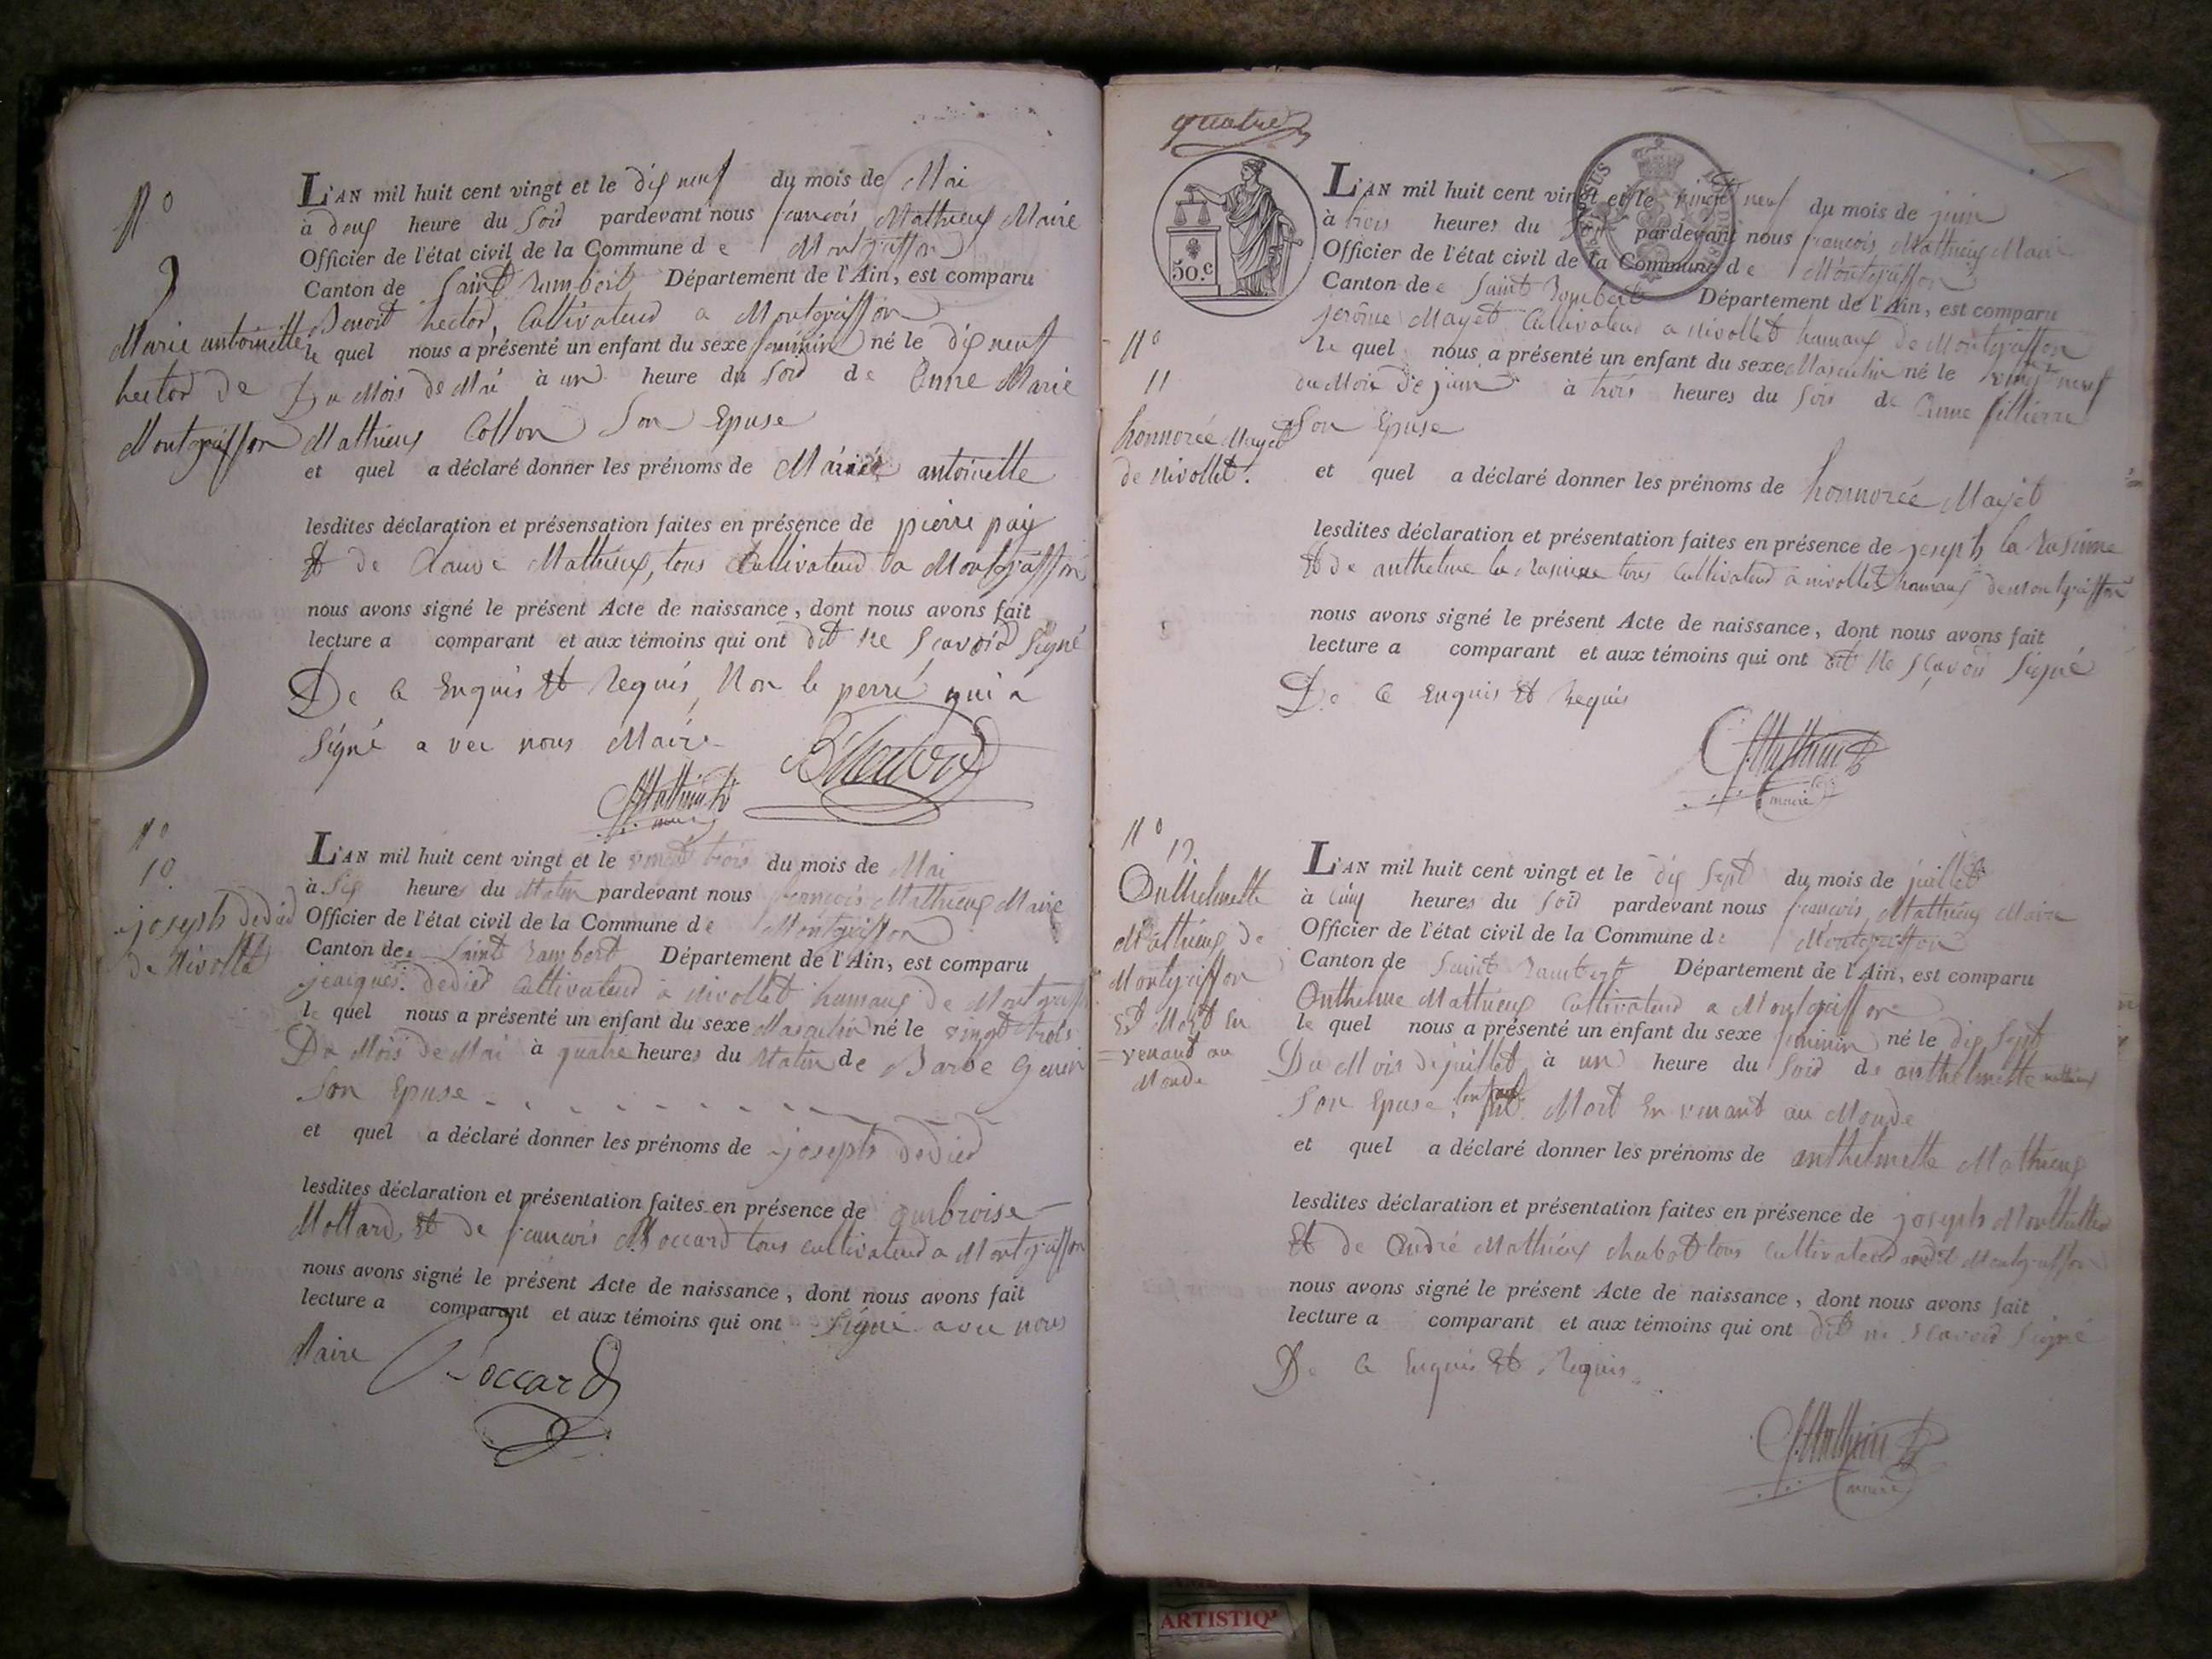 N°
9
Marie antoinette
hector de
Montgriffon
L'AN mil huit cent vingt et le dix neuf du mois de Mai
à deux heure du Soir pardevant nous françois Mathieux Maire
Officier de l'état civil de la Commune de Montgriffon
Canton de Saint Rambert Département de l'Ain, est comparu
Benoit hector, Cultivateur a Montgriffon
le quel nous a présenté un enfant du sexe feminin né le dix neuf
Du Mois de Mai à un heure du Soir de Anne Marie
Mathieux Collon Son Epuse
et quel a déclaré donner les prénoms de Marie antoinette
lesdites déclaration et présensation faites en présence de pierre
Et de Claude Mathieux, tous Cultivateur a Montgriffon
nous avons signé le présent Acte de naissance, dont nous avons fait
lecture a comparant et aux témoins qui ont dit ne Scavoir Signé
De ce Enquis Et Requis, Non le perre qui a
Signé avec nous Maire
B hector
Mathieux
maire
N°
10
joseph dedied
de Nivollet
L'AN mil huit cent vingt et le vingt trois du mois de Mai
à Six heures du Matin pardevant nous françois Mathieux Maire
Officier de l'état civil de la Commune de Montgriffon
Canton de Saint Rambert Département de l'Ain, est comparu
jacques dedied Cultivateur a nivollet hamaux de Montgriffon
le quel nous a présenté un enfant du sexe Masculin né le vingt trois
Du Mois de Mai à quatre heures du Matin de Barbe Genin
Son Epuse
et quel a déclaré donner les prénoms de joseph dedied
lesdites déclaration et présentation faites en présence de ambroise
Mottard, Et de francois Boccard tous cultivateur a Montgriffon
nous avons signé le présent Acte de naissance, dont nous avons fait
lecture a comparant et aux témoins qui ont Signé avec nous
Maire
Boccard
quatre
50.c
N°
11
honnorée Mayet
de Nivollet.
L'AN mil huit cent vingt et le vingt neuf du mois de juin
à trois heures du Soir pardevant nous francois Mathieux Maire
Officier de l'état civil de la Commune de Montgriffon
Canton de Saint Rambert Département de l'Ain, est comparu
jerôme Mayet Cultivateur a nivollet hamaux de Montgriffon
le quel nous a présenté un enfant du sexe Masculin né le vingt neuf
du Mois de juin à trois heures du Soir de Anne fillierre
Son Epuse
et quel a déclaré donner les prénoms de honnorée Mayet
lesdites déclaration et présentation faites en présence de joseph la
Et de anthelme la tous Cultivateur a nivollet hamaux de montgriffon
nous avons signé le présent Acte de naissance, dont nous avons fait
lecture a comparant et aux témoins qui ont dit Ne Sçavoir Signé
De ce Enquis Et Requis
Mathieux
maire
N°
12
Anthelmette
Mathieux de
Montgriffon
Est Mort En
venant au
Monde
L'AN mil huit cent vingt et le dix Sept du mois de juillet
à Cinq heures du Soir pardevant nous francois Mathieux Maire
Officier de l'état civil de la Commune de Montgriffon
Canton de Saint Rambert Département de l'Ain, est comparu
Anthelme Mathieux Cultivateur a Montgriffon
le quel nous a présenté un enfant du sexe feminin né le dix Sept
Du Mois de juillet à un heure du Soir de anthelmette mathieux
Son Epuse, Mort En venant au Monde
et quel a déclaré donner les prénoms de anthelmette Mathieux
lesdites déclaration et présentation faites en présence de joseph
Et de André Mathieux chabot tous Cultivateur Montgriffon
nous avons signé le présent Acte de naissance, dont nous avons fait
lecture a comparant et aux témoins qui ont dit ne Scavoir Signé
De ce Enquis Et Requis
Mathieux
maire
ARTISTIQ